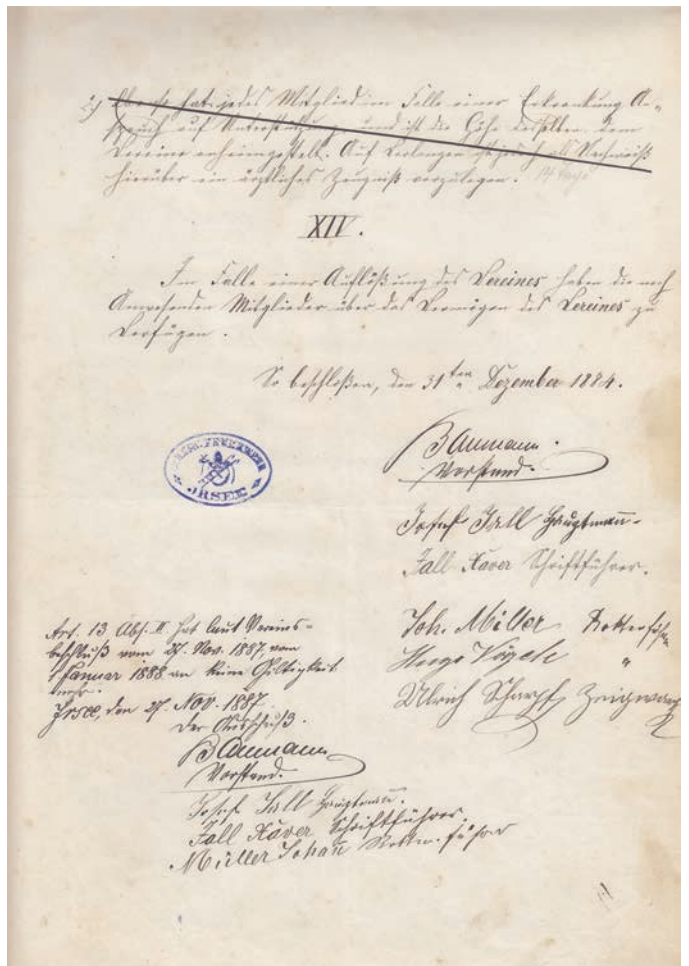 2) Ebenso hat jedes Mitglied im Falle einer Erkrankung An-
spruch auf Unterstützung und ist die Höhe desselben dem
Vereine anheimgestellt. Auf Verlangen ist jedoch als Nachweiß
hierüber ein ärztliches Zeugniß vorzulegen. 14 Tage
XIV.
Im Falle einer Auflößung des Vereines haben die noch
Anwesenden Mitglieder über das Vermögen des Vereines zu
Verfügen.
So beschloßen, den 31ten Dezember 1884.
Baumann.
Vorstand.
FREIW. FEUERWEHR
IRSEE
Josef Fall Hauptmañ.
Fall Xaver Schriftführer.
Joh. Müller Rottenführer
Hugo "
Ulrich Scharpf Zeugwart
Art. 13 Abs. II hat laut Vereins-
beschluß vom 27. Nov. 1887, vom
1 Januar 1888 an keine Giltigkeit
mehr.
Irsee, den 27. Nov. 1887.
Der Ausschuß.
Baumann
Vorstand.
Josef Fall Hauptmañ.
Fall Xaver Schriftführer.
Müller Johañ Rotten.führer